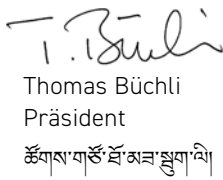 T. Büchli
Thomas Büchli
Präsident
ཚོགས་གཙོ་ཐོ་མཟ་སྦུག་ལི།